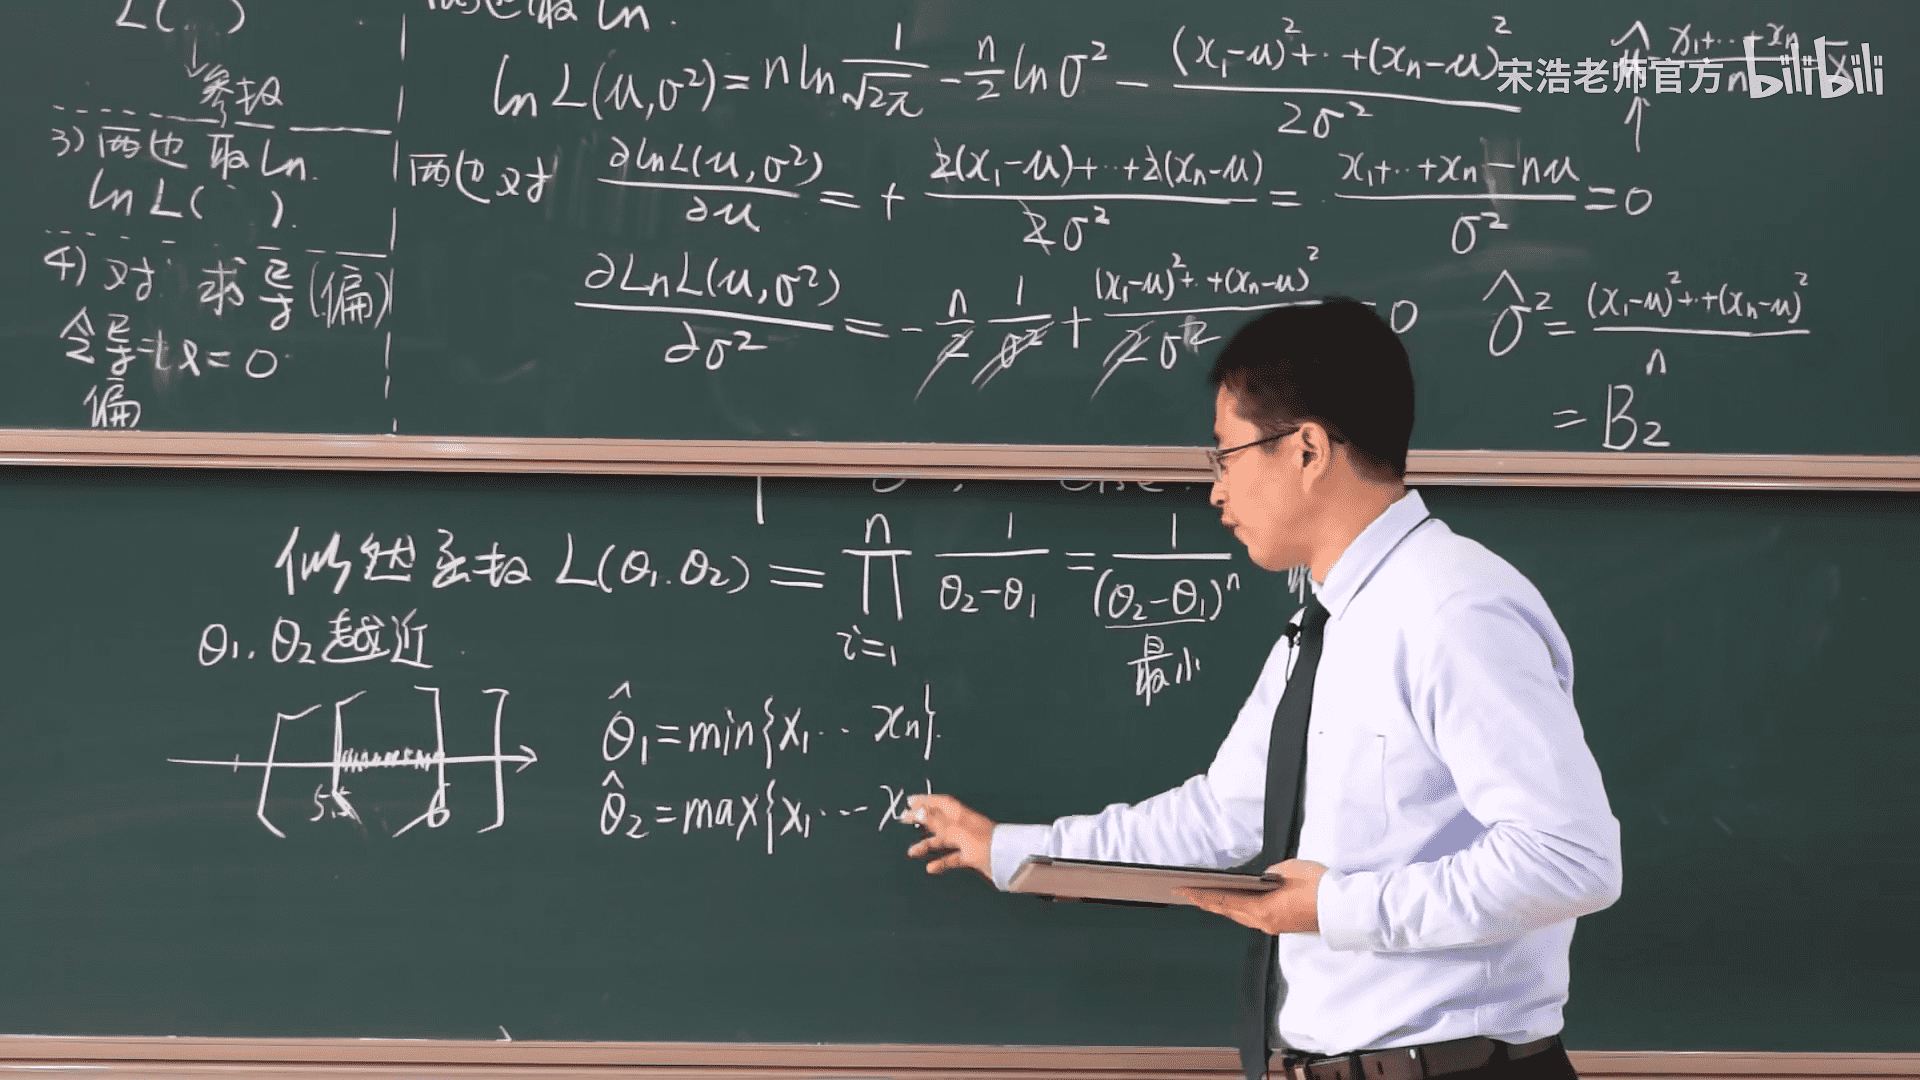 L( )
参数
3) 两边取ln.
ln L( ).
4) 对 求导(偏)
令导=0
偏
两边取ln.
ln L(μ,σ²) = n ln 1/√2π - n/2 ln σ² - (x₁-μ)²+··+(xn-μ)² / 2σ²
两边对 ∂lnL(μ,σ²)/∂μ = + 2(x₁-μ)+··+2(xn-μ) / 2σ² = x₁+··+xn-nμ / σ² = 0
∂LnL(μ,σ²)/∂σ² = - n/2 1/σ² + (x₁-μ)²+··+(xn-μ)² / 2σ² 0
x₁+··+xn / n
σ̂² = (x₁-μ)²+··+(xn-μ)² / n
= B₂
宋浩老师官方 bilibili
0, else.
似然函数 L(θ₁.θ₂) = ∏ n i=1 1/θ₂-θ₁ = 1/(θ₂-θ₁)ⁿ
最小
θ₁.θ₂越近.
5.5 6
θ̂₁=min{x₁··xn}.
θ̂₂=max{x₁···xn}